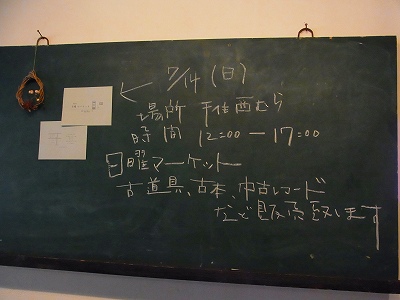 7/14 (日)
場所 千住酉むら
時間 12:00-17:00
日曜マーケット
古道具、古本、中古レコード
など販売致します